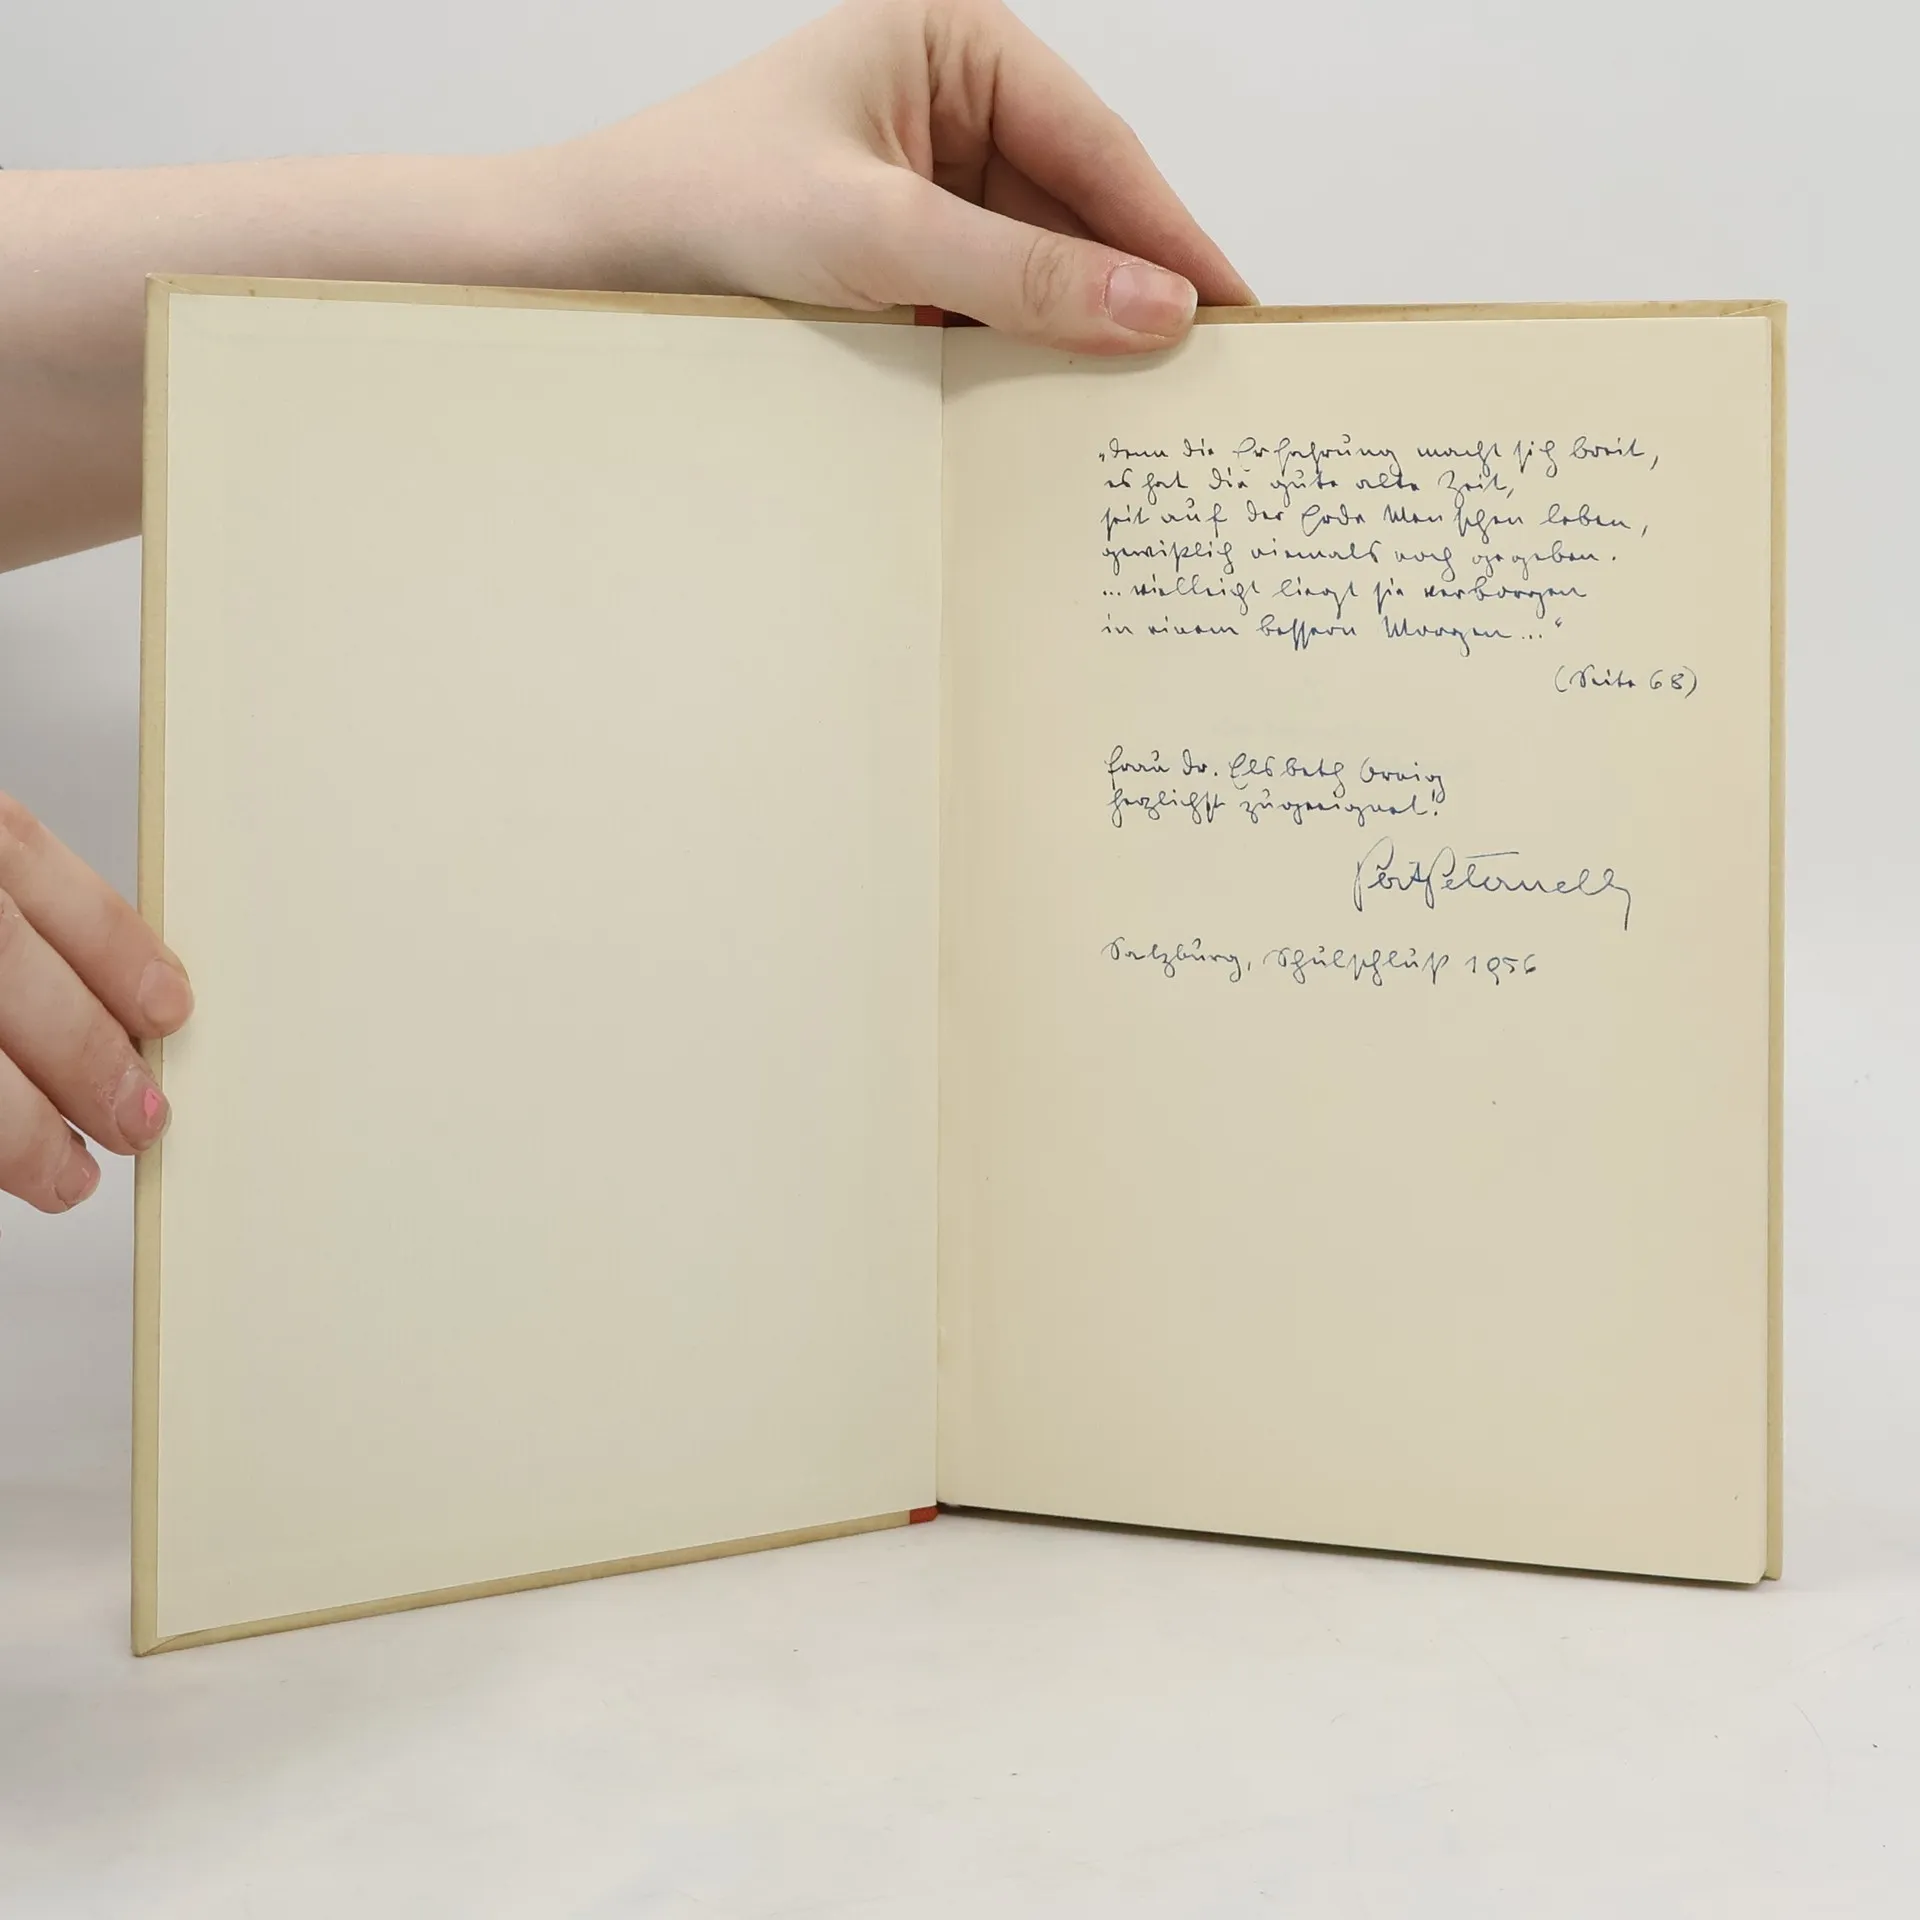 „Denn die Erfahrung macht sich breit,
es hat die gute alte Zeit,
seit auf der Erde Menschen leben,
gewißlich niemals noch gegeben.
... vielleicht liegt sie verborgen
in einem bessern Morgen ..."
(Seite 68)
Frau Dr. Elsbeth
herzlichst zugeeignet!
Pert Peternell
Salzburg, Schulschluß 1956